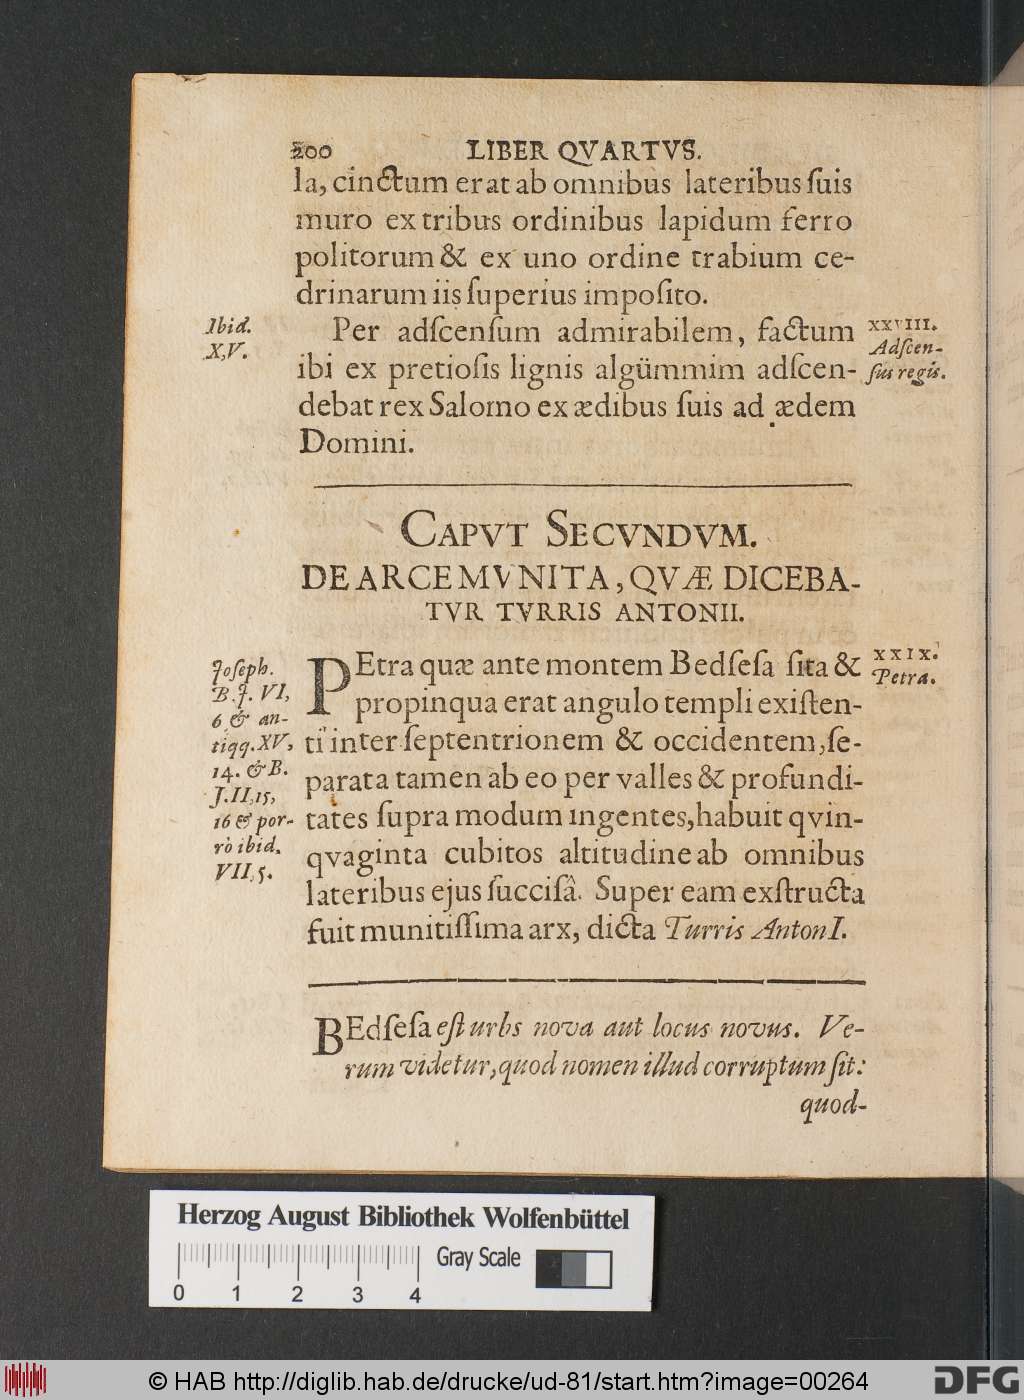 200 LIBER QVARTVS.
la, cinctum erat ab omnibus lateribus ſuis
muro ex tribus ordinibus lapidum ferro
politorum & ex uno ordine trabium ce-
drinarum iis ſuperius impoſito.
Ibid.
X,V.
Per adſcenſum admirabilem, factum
ibi ex pretioſis lignis algümmim adſcen-
debat rex Salomo ex ædibus ſuis ad ædem
Domini.
XXVIII.
Adſcen-
ſus regis.
CAPVT SECVNDVM.
DE ARCE MVNITA, QVÆ DICEBA-
TVR TVRRIS ANTONII.
Joſeph.
B. J. VI,
6 & an-
tiqq. XV,
14. & B.
J. II, 15,
16 & por-
rò ibid.
VII, 5.
PEtra quæ ante montem Bedſeſa ſita &
propinqua erat angulo templi exiſten-
ti inter ſeptentrionem & occidentem, ſe-
parata tamen ab eo per valles & profundi-
tates ſupra modum ingentes, habuit qvin-
qvaginta cubitos altitudine ab omnibus
lateribus ejus ſucciſâ. Super eam exſtructa
fuit munitiſſima arx, dicta Turris AntonI.
XXIX.
Petra.
BEdſeſa eſt urbs nova aut locus novus. Ve-
rum videtur, quod nomen illud corruptum ſit:
quod-
Herzog August Bibliothek Wolfenbüttel
Gray Scale
0 1 2 3 4
© HAB http://diglib.hab.de/drucke/ud-81/start.htm?image=00264
DFG